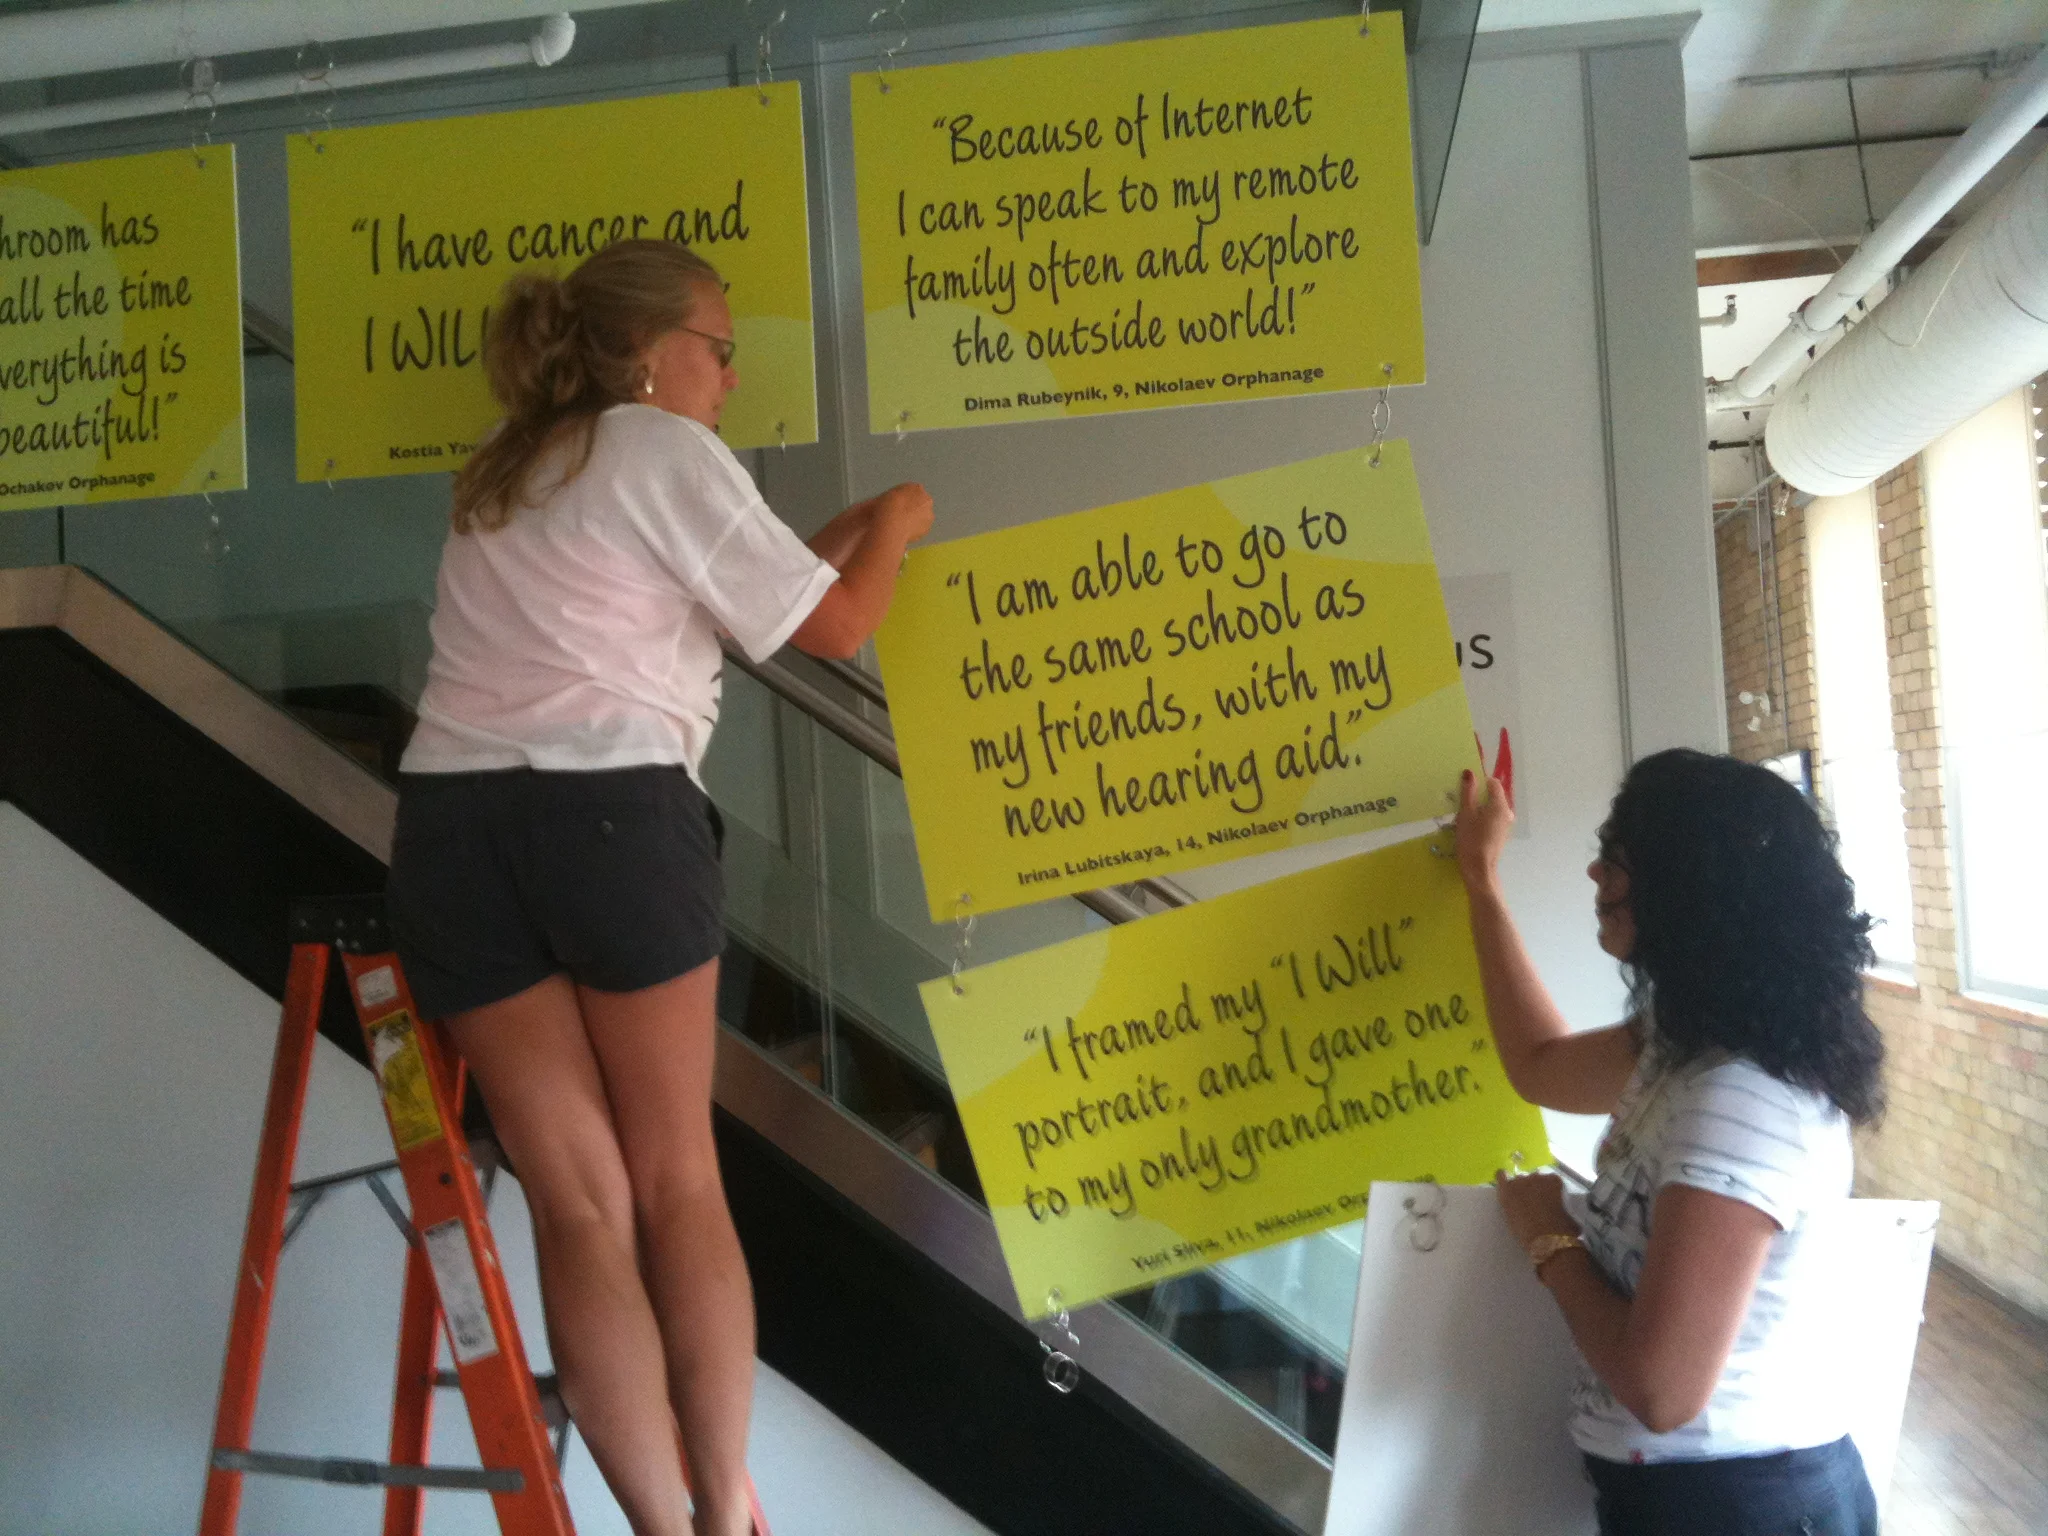 hroom has
all the time
verything is
beautiful!"
Ochakov Orphanage
"I have cancer and
I WILL
Kostia
"Because of Internet
I can speak to my remote
family often and explore
the outside world!"
Dima Rubeynik, 9, Nikolaev Orphanage
"I am able to go to
the same school as
my friends, with my
new hearing aid."
Irina Lubitskaya, 14, Nikolaev Orphanage
"I framed my "I Will"
portrait, and I gave one
to my only grandmother."
11, Nikolaev